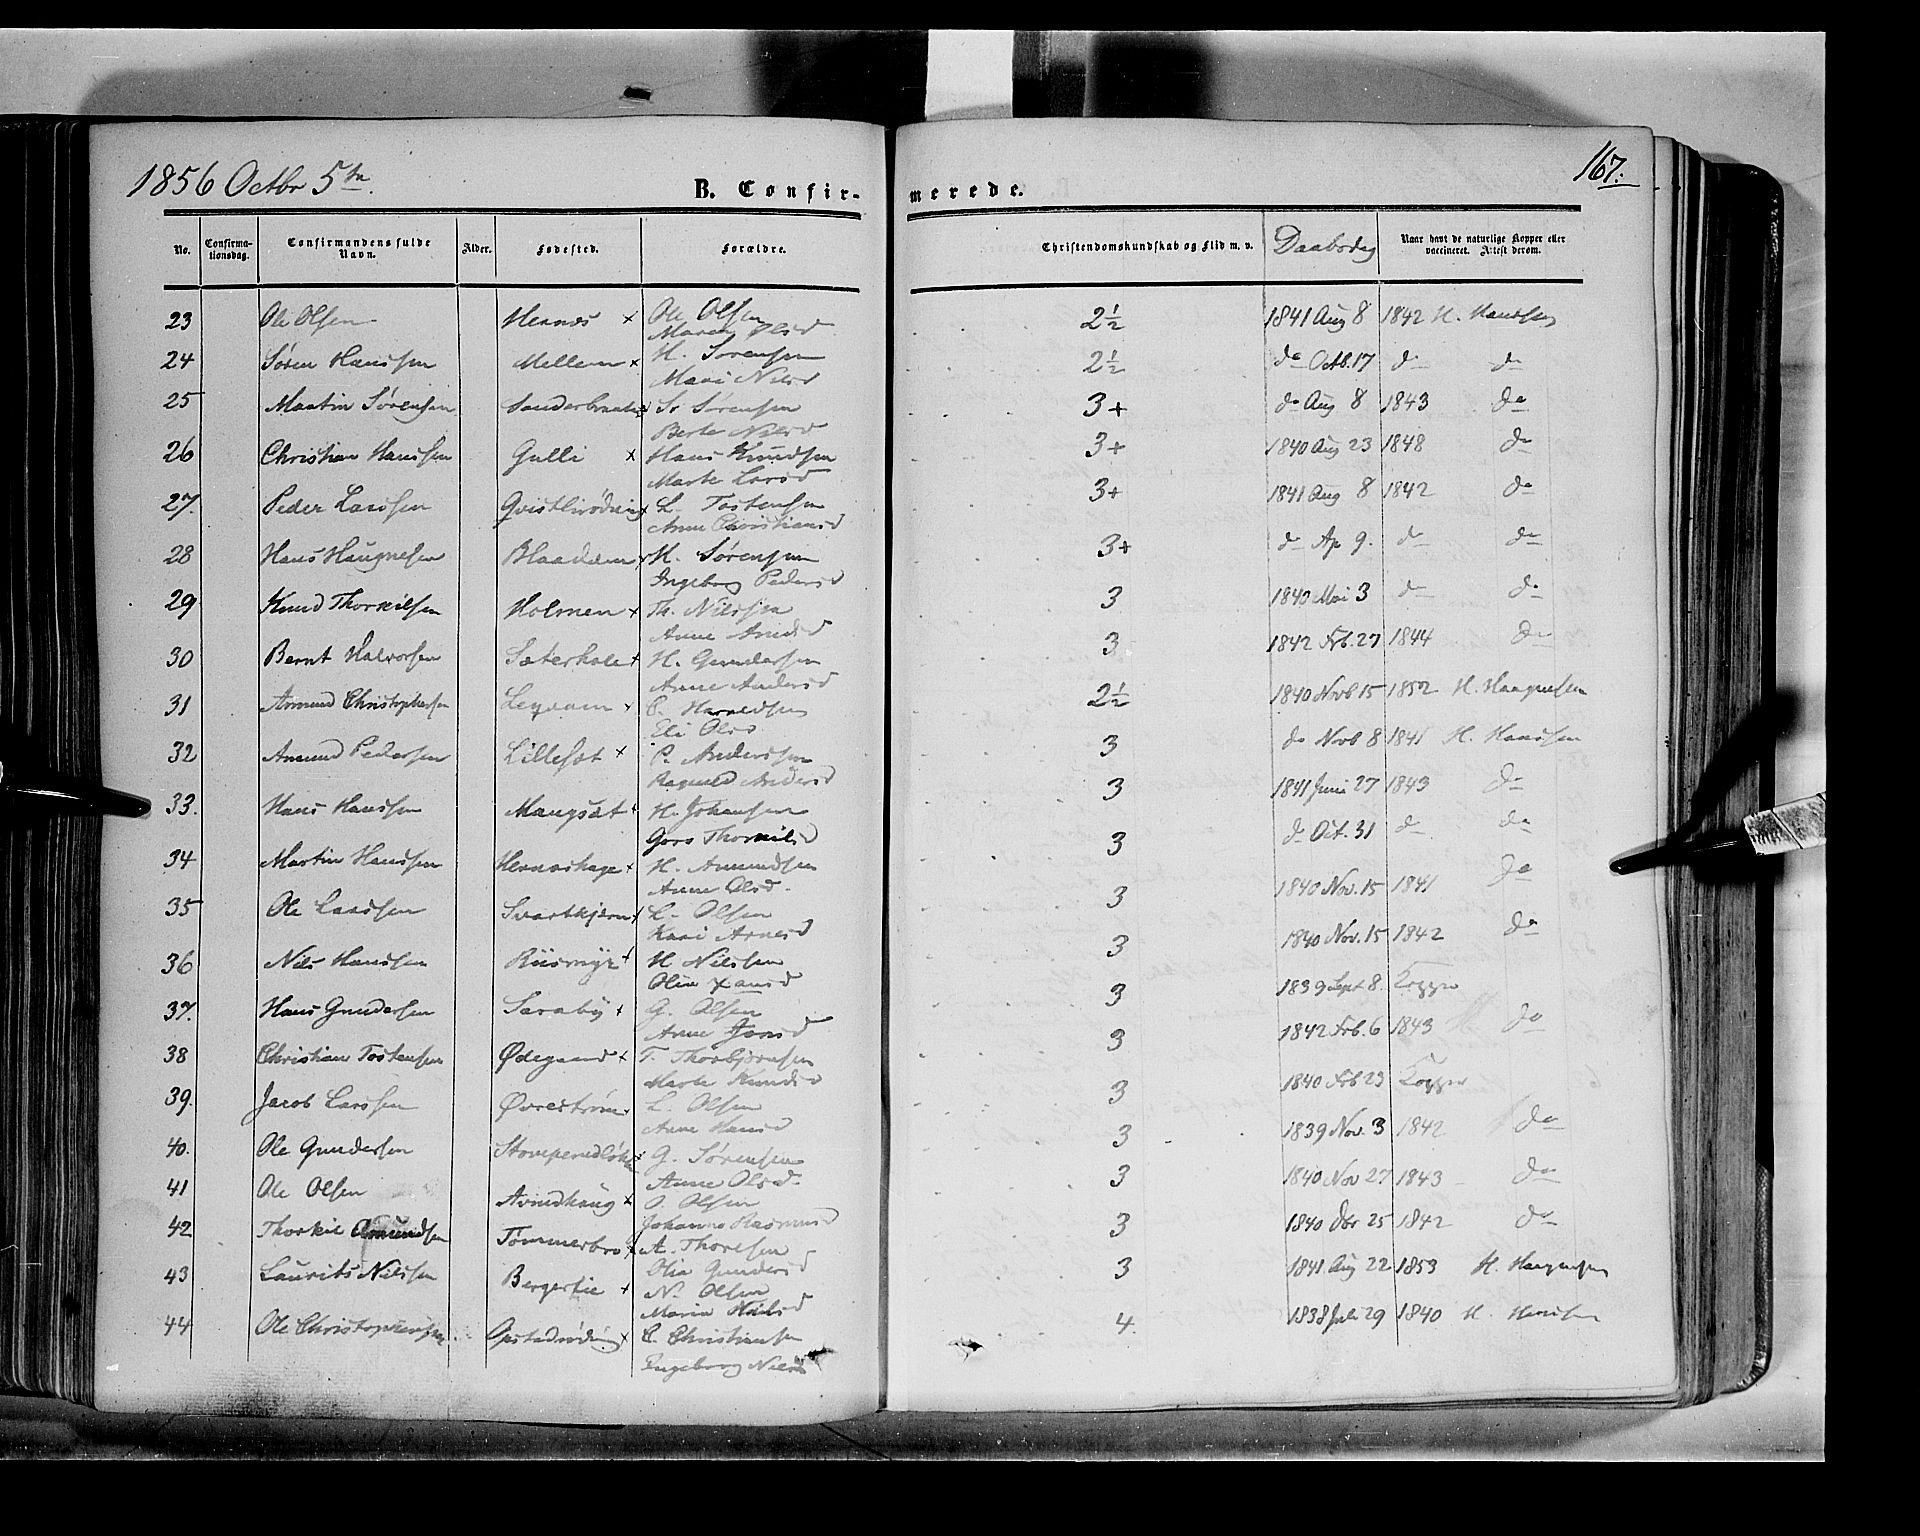 1856 Octbr 5te
167.
B. Confir- merede.
No. Confirmationsdag. Confirmandens fulde Navn. Alder. Fødested. Forældre. Christendomskundskab og Flid m. v. Daabsdag Naar havt de naturlige Kopper eller vaccineret. Attest derom.
23 Ole Olsen Hernæs x Ole Olsen 2½ 1841 Aug 8 1842 H. Hanssen
Maren Olsd
24 Søren Hanssen Mellem x H. Sørensen 2½ do Octb. 17 do do
Mari Nilsd
25 Martin Sørensen Sønderbraaten x Sr Sørensen 3+ do Aug 8 1843 do
Berte Nilsd
26 Christian Hanssen Gulli x Hans Knudsen 3+ 1840 Aug 23 1848 do
Marte Larsd
27. Peder Larssen L. Tostensen 3+ 1841 Aug 8 1842 do
Anne Christiansd
28 Hans Haugnesen H. Sørensen 3+ do Ap 9. do do
Ingeborg Pedersd
29 Knud Thorkilsen Holmen x Th. Nilssen 3 1840 Mai 3 do do
Anne
30 Bernt Halvorsen Sæterhole x H. Gundersen 3 1842 Feb. 27 1844 do
Anne Andersd
31 Amund Christophersen C. Haraldsen 2½ 1840 Novb 15 1852 H. Haagnesen
Eli Olsd
32 Amund Pedersen Lillesæt x P. Anderssen 3 do Novb 8 1841 H. Hanssen
Ragnild Andersd
33. Hans Hanssen Mangsæt x H. Johansen 3 1841 Juni 27 1843 do
Goro Thorkilsd
34 Martin Hanssen Hernæshage x H. Amundsen 3 do Oct. 31 do do
Anne Olsd.
35 Ole Larssen Svartkjern x L. Olsen 3 1840 Nov. 15 1841 do
Kari Arnesd
36 Nils Hanssen Riismyr x H Nilssen 3 1840 Nov. 15 1842 do
Olia
37. Hans Gundersen Saraby x G. Olsen 3 1839 Sept 8. Kopper
Anne Jonsd
38 Christian Tostensen Ødegaard x T. Thorbjørnsen 3 1842 Feb. 6 1843 do
Marte Knudsd
39. Jacob Larssen Øvrestrøm x L. Olsen 3 1840 Feb 23 Kopper
Anne Hansd
40. Ole Gundersen G. Sørensen 3 1839 Nov. 3 1842 do
Anne Olsd.
41 Ole Olsen Avindhaug x O. Olsen 3 1840 Nov 27 1843 do
Johanne Rasmusd
42 Thorkil Amundsen Tømmerbro x A. Thoresen 3 1840 Dbr 25 1842 do
Olia Gundersd
43 Laurits Nilssen Bergertie x N. Olsen 3 1841 Aug 22 1853 H. Haagnesen
Maria Nilsd
44 Ole Christophersen Opstadrødning x C. Christiansen 4. 1838 Juli 29 1840 H. Hanssen
Ingeborg Nilsd